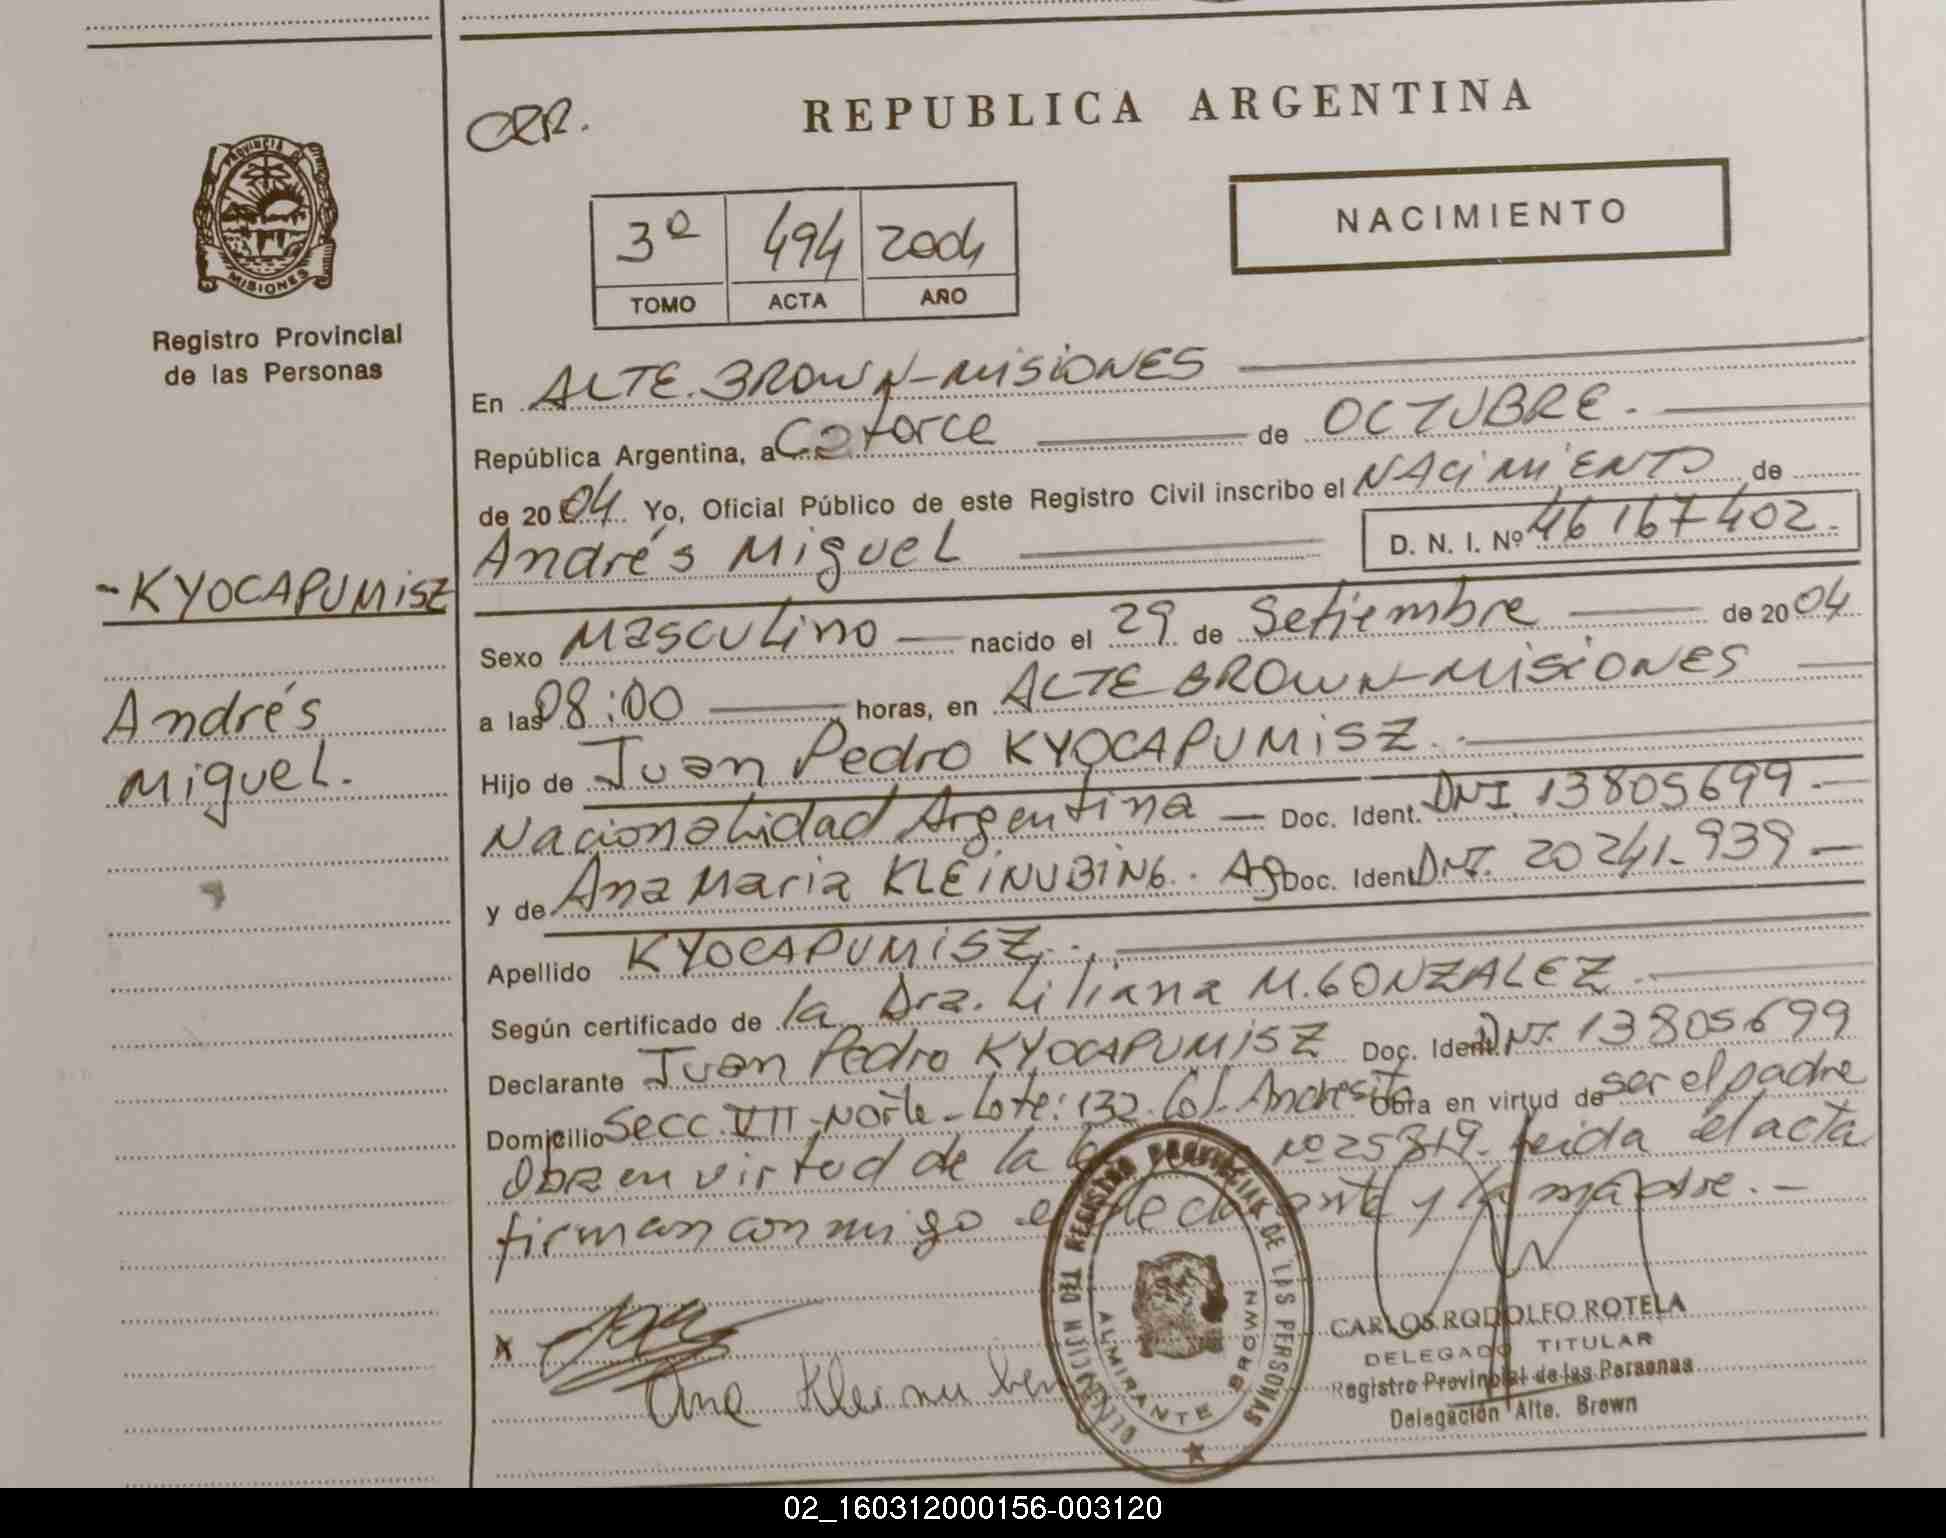 CRR.
REPUBLICA ARGENTINA
NACIMIENTO
3º 494 2004
TOMO ACTA AÑO
PROVINCIA DE
MISIONES
Registro Provincial
de las Personas
En ALTE. BROWN-MISIONES
República Argentina, a Catorce de OCTUBRE.
de 2004. Yo, Oficial Público de este Registro Civil inscribo el NACIMIENTO de
Andrés Miguel D. N. I. Nº 46167402.
-KYOCAPUMISZ
Andrés
Miguel.
Sexo Masculino nacido el 29 de Setiembre de 2004
a las 08:00 horas, en ALTE BROWN-MISIONES
Hijo de Juan Pedro KYOCAPUMISZ.
Nacionalidad Argentina Doc. Ident. DNI 13805699.-
y de Ana Maria KLEINUBING. Ag Doc. Ident DNI. 20241.939
Apellido KYOCAPUMISZ.
Según certificado de la Dra. Liliana M. GONZALEZ.
Declarante Juan Pedro KYOCAPUMISZ Doc. Ident. DNI. 13805699
Domicilio Secc. VII-Norte-Lote: 132. Col. Andresito Obra en virtud de ser el padre
Obra en virtud de la Nº 25819. Leida el acta
firman conmigo el declarante y la madre.-
x
Ana
DELEGACION DEL REGISTRO PROVINCIAL DE LAS PERSONAS
ALMIRANTE BROWN
CARLOS RODOLFO ROTELA
DELEGADO TITULAR
Registro Provincial de las Personas
Delegación Alte. Brown
02_160312000156-003120